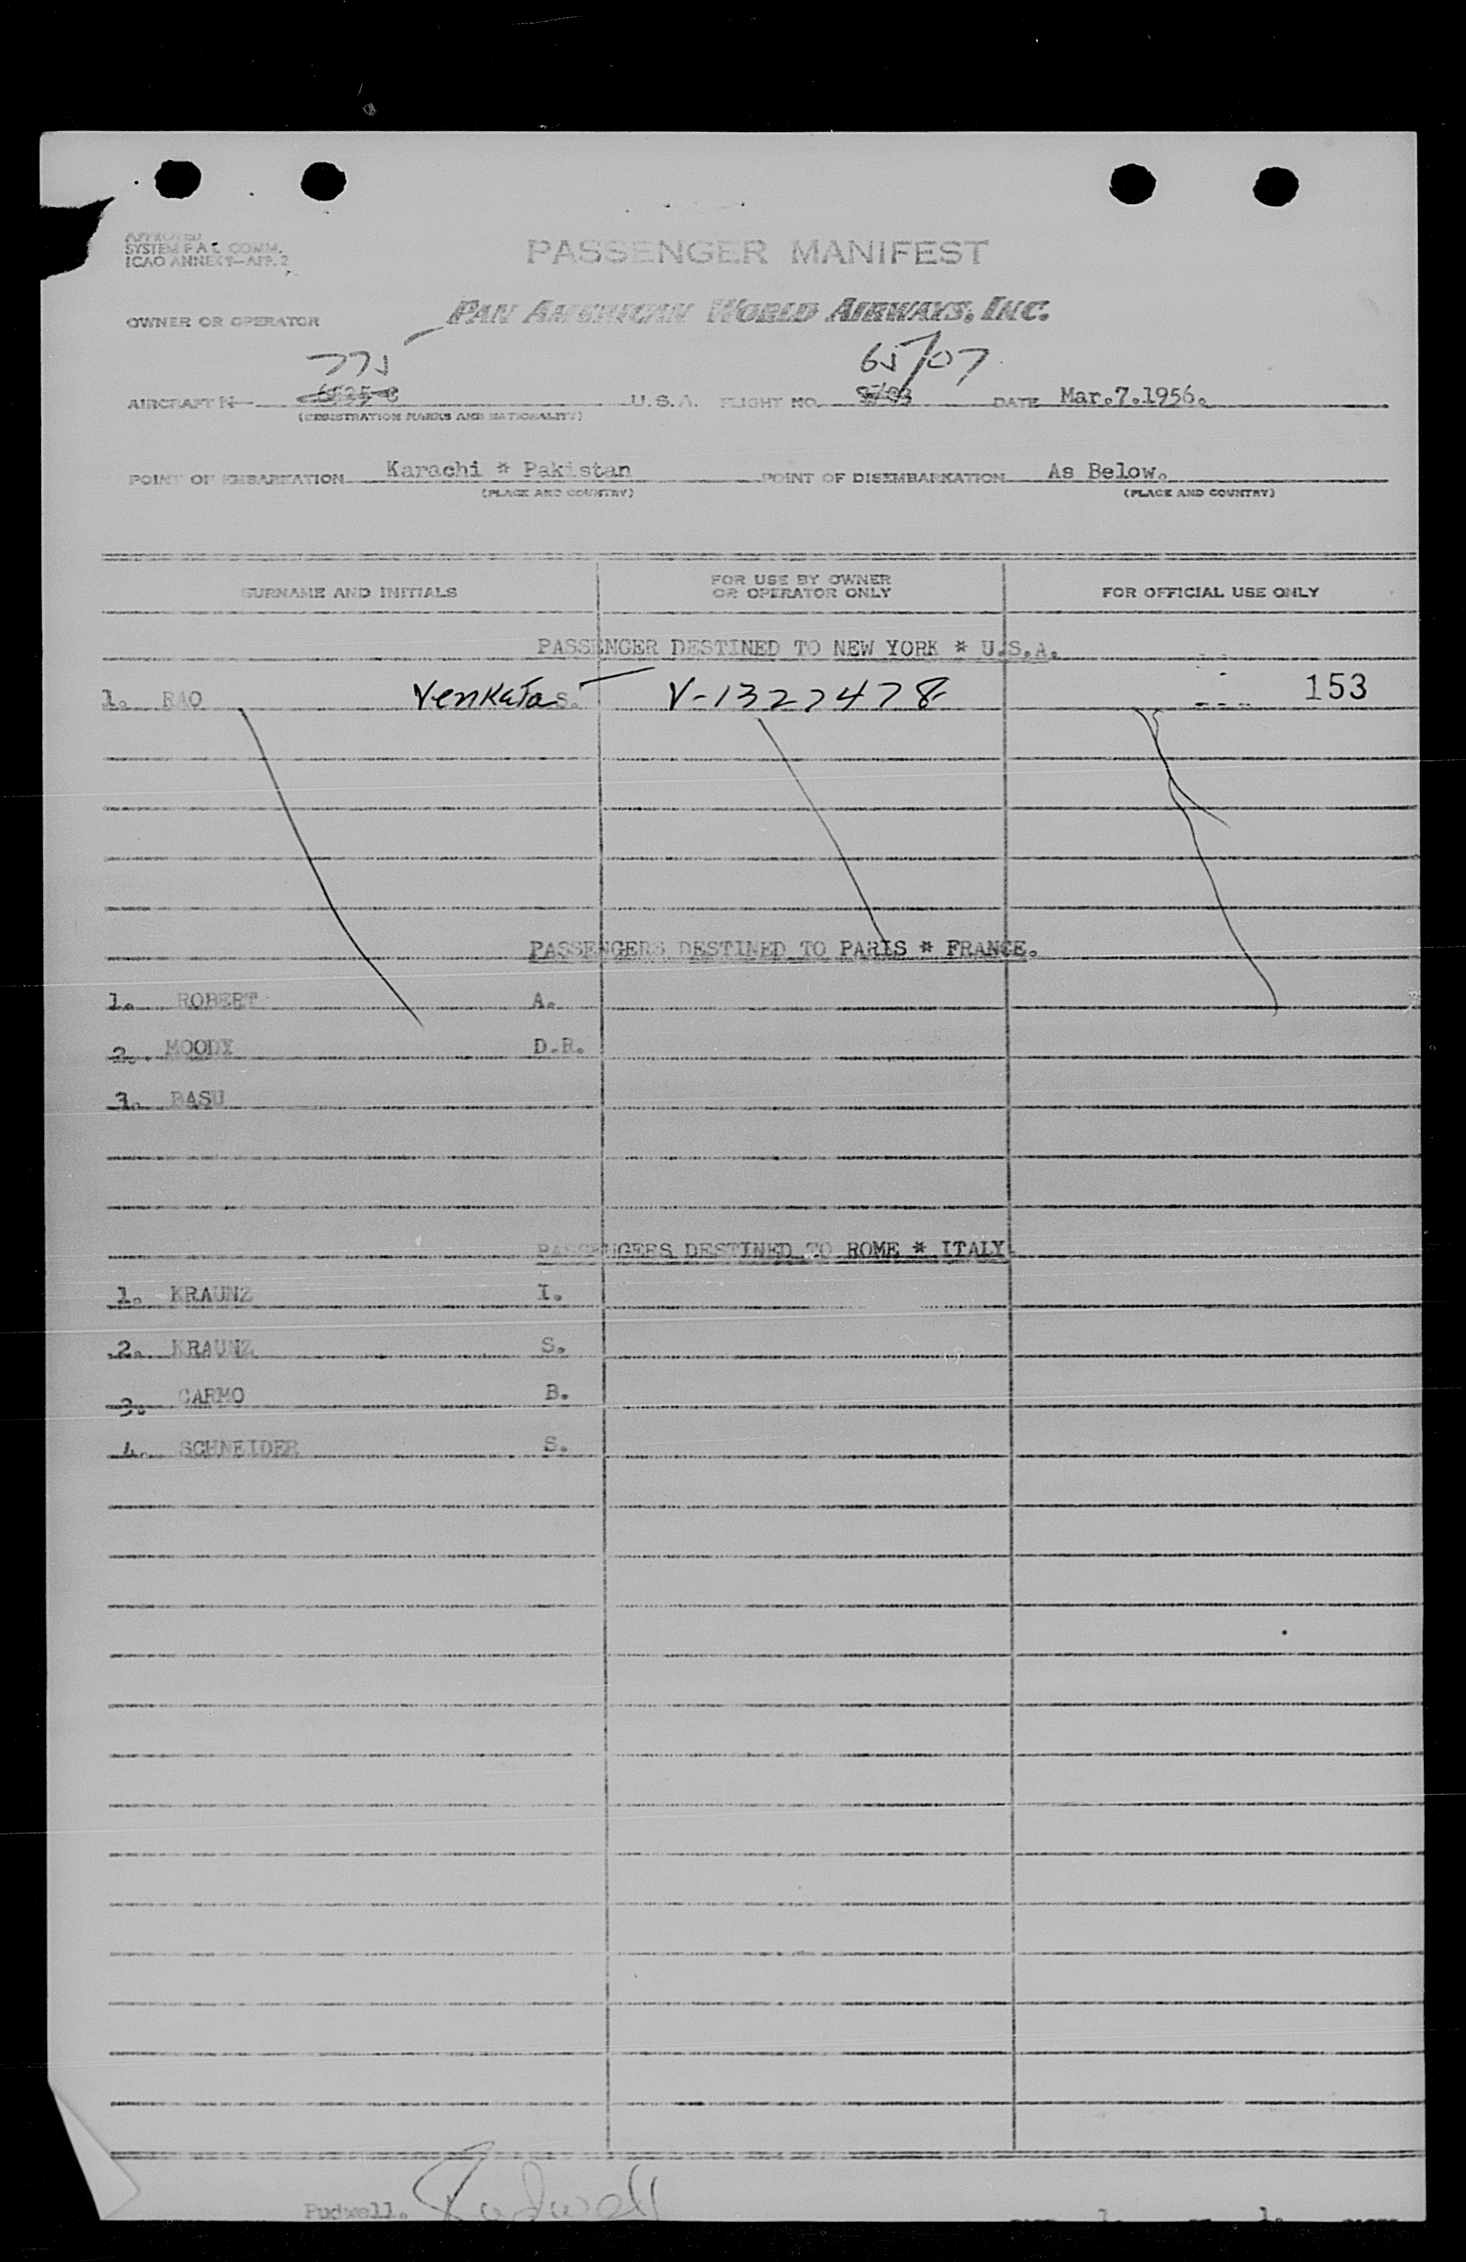 APPROVED
SYSTEM F.A.L. COMM.
ICAO ANNEX 9—APP. 2
PASSENGER MANIFEST
OWNER OR OPERATOR PAN AMERICAN WORLD AIRWAYS, INC.
775 65/07
AIRCRAFT N U.S.A. FLIGHT NO. DATE Mar.7.1956.
(REGISTRATION MARKS AND NATIONALITY)
POINT OF EMBARKATION Karachi * Pakistan POINT OF DISEMBARKATION As Below.
(PLACE AND COUNTRY) (PLACE AND COUNTRY)
SURNAME AND INITIALS FOR USE BY OWNER OR OPERATOR ONLY FOR OFFICIAL USE ONLY
PASSENGER DESTINED TO NEW YORK * U.S.A.
1. RAO Venkata S. V-1327478 153
PASSENGERS DESTINED TO PARIS * FRANCE.
1. ROBERT A.
2. MOODY D.R.
3. BASU
PASSENGERS DESTINED TO ROME * ITALY.
1. KRAUNZ I.
2. KRAUNZ S.
3. CARMO B.
4. SCHNEIDER S.
Pudwell. Pudwell